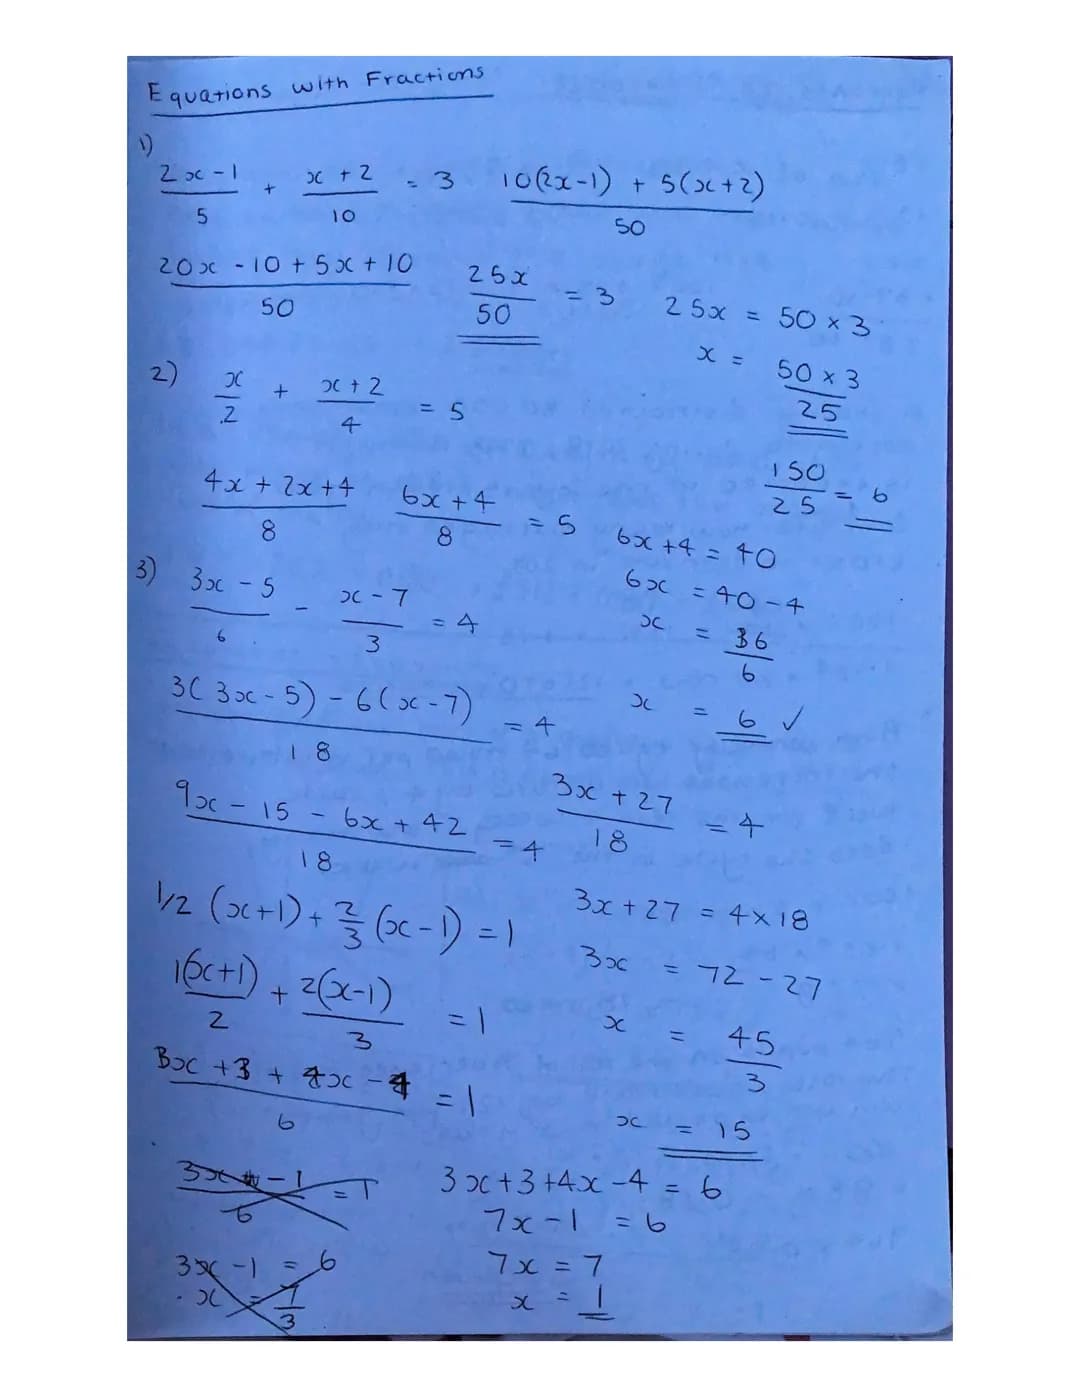 Equations with Fractions
1)
(2x - 1)/5 + (x + 2)/10 = 3
(10(2x-1) + 5(x+2))/50
(20x - 10 + 5x + 10)/50
25x/50 = 3
25x = 50 x 3
x = (50 x 3)/25
150/25 = 6
2)
x/2 + (x + 2)/4 = 5
(4x + 2x + 4)/8
(6x + 4)/8 = 5
6x + 4 = 40
6x = 40 - 4
x = 36/6
x = 6 ✓
3)
(3x - 5)/6 - (x - 7)/3 = 4
(3(3x - 5) - 6(x - 7))/18 = 4
(9x - 15 - 6x + 42)/18 = 4
(3x + 27)/18 = 4
3x + 27 = 4 x 18
3x = 72 - 27
x = 45/3
x = 15
1/2 (x+1) + 2/3 (x - 1) = 1
1(x+1)/2 + 2(x-1)/3 = 1
(3x + 3 + 4x - 4)/6 = 1
3x - 1 = 6
x = 7/3
3x + 3 + 4x - 4 = 6
7x - 1 = 6
7x = 7
x = 1